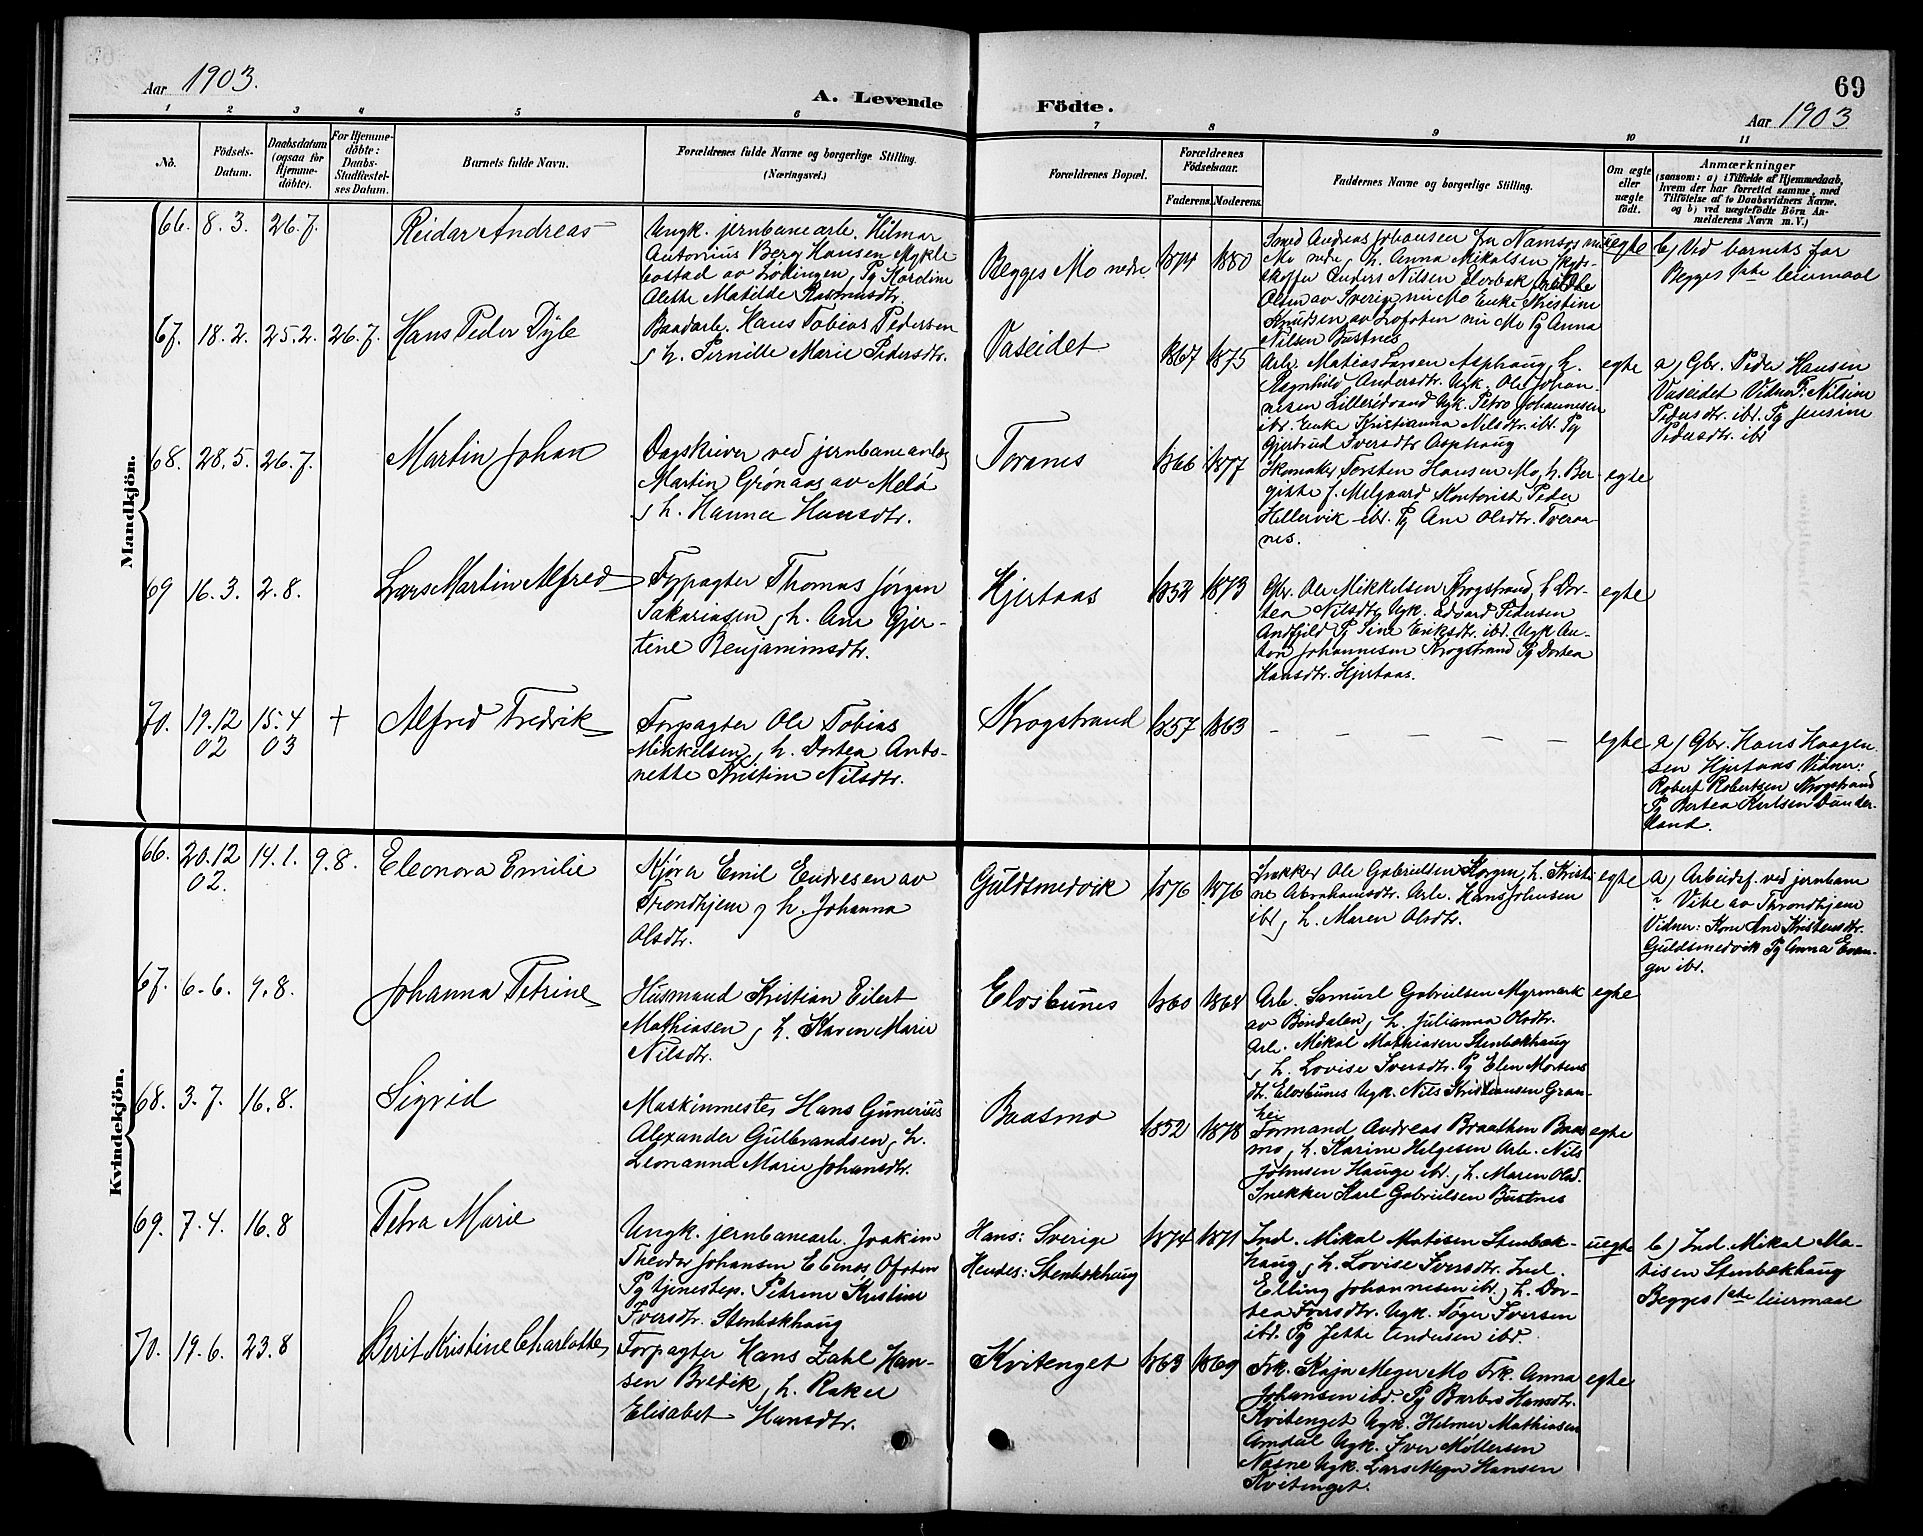 69
Aar 1903.
A. Levende Födte.
Aar 1903
1 2 3 4 5 6 7 8 9 10 11
No.
Födsels-
Datum.
Daabsdatum
(ogsaa for
Hjemme-
döbte).
For Hjemme-
döbte:
Daabs-
Stadfæstel-
ses Datum.
Barnets fulde Navn.
Forældrenes fulde Navne og borgerlige Stilling.
(Næringsvei.)
Forældrenes Bopæl.
Forældrenes
Födselsaar.
Faderens. Moderens.
Faddernes Navne og borgerlige Stilling.
Om ægte
eller
uægte
født.
Anmærkninger
(saasom: a) i Tilfælde af Hjemmedaab,
hvem der har forrettet samme, med
Tilföielse af to Daabsvidners Navne,
og b) ved uægtefödte Börn An-
melderens Navn m. V.)
Mandkjön.
66. 8.3. 26.7. Reidar Andreas
Ungk. jernbanearb. Hilmar
Antonius Berg Hansen Mykle
bostad av Lødingen, Pg Hardine
Alette Matilde Rasmusdtr.
Begges Mo nedre 1874 1880
Smed Andreas Johansen fra Namsos nu
Mo nedre, h. Anna Mikalsen
Anders Nilsen
Olsen av Sverige, nu Mo Enke Kristine
Knudsen av Lofoten nu Mo Pg Anna
Nilsen Bustnes
uegte
b) Ved barnets far
Begges 1ste leiermaal
67. 18.2. 25.2. 26.7. Hans Peder Dyb
Baadarb. Hans Tobias Pedersen
, h. Pernille Marie Pedersdtr.
Vaseidet 1867 1875
Arb. Matias Larsen Asphaug, h.
Ragnhild Andersdtr. Ugk. Ole Johan-
nesen Lillerødvand Ugk. Petro Johannesen
ibd. Enke Kristianna Nilsdtr. ibd. Pg
Gjertrud Iversdtr Asphaug
egte
a) Gbr. Peder Hansen
Vaseidet Vidner: Nilsine
Pedersdtr. ibd. Pg Jensine
Pedersdtr. ibd
68. 28.5. 26.7. Martin Johan
Dagskriver ved jernbaneanleg
Martin Grønaas av Melø
, h. Hanna Hansdtr.
Toranes 1866 1877
Skomaker Torsten Hansen Mo, h. Ber-
gitte f. Melgaard Kontorist Peder
Hellervik ibd. Pg Ane Olsdtr. Tveraa-
nes.
egte
69 16.3. 2.8. Lars Martin Alfred
Forpagter Thomas Jørgen
Sakariasen, h. Ane Gjer-
tine Benjaminsdtr.
Hjertaas 1852 1873
Gbr. Ole Mikkelsen Krogstrand, h Dor-
tea Nilsdtr, Ugk. Edvard Pedersen
Andfjeld Pg Sine Eriksdtr. ibd. Ugk An-
ton Johannesen Krogstrand Pg Dortea
Hansdtr. Hjertaas.
egte
70. 19.12 15.4 + Alfred Fredrik
02 03
Forpagter Ole Tobias
Mikkelsen, h. Dortea Anto-
nette Kristine Nilsdtr.
Krogstrand 1857 1863
— — — — — —
egte
a) Gbr. Hans Haagen-
sen Hjertaas Vidner:
Robert Robertsen Krogstrand
Pg Bertea Karlsen Dunder-
land.
Kvindekjön.
66. 20.12 14.1. 9.8. Eleonora Emilie
02.
Kjøra Emil Endresen av
Trondhjem, h. Johanna
Olsdtr.
Guldsmedvik 1876 1876
Snekker Ole Gabrielsen Korgen, h. Kristi-
ne Abrahamsdtr. Arb. Hans Johnsen
ibd, h. Maren Olsdtr.
egte
a) Arbeidsf. ved jernbane
Vibe av Throndhjem
Vidner: Kone Ane Kristensdtr.
Guldsmedvik Pg Anna Evan-
ger ibd.
67. 6.6. 9.8. Johanna Petrine
Husmand Kristian Eilert
Mathiasen, h. Karen Marie
Nilsdtr.
Elvsbunes 1860 1864
Arb. Samuel Gabrielsen Myrmark
av Bindalen, h. Julianna Olsdtr.
Arb. Mikal Mathiasen Stenbækhaug
, h. Lovise Iversdtr. Pg Elen Mortens
dt. Elvsbunes Ugk. Nils Kristiansen Gran-
hei
egte
68. 3.7. 16.8. Sigrid
Maskinmester Hans Gunerius
Alexander Gulbrandsen, h.
Leonanna Marie Johansdtr.
Baasmo 1852 1878
Formand Andreas Braathen Baas-
mo, h. Karine Helgesen Arb. Nils
Johnsen Hauge ibd, h. Maren Olsd.
Snekker Karl Gabrielsen Bustnes
egte
69. 7.4. 16.8 Petra Marie
Ungk. jernbanearb. Joakim
Theodor Johansen Ebnes Ofoten
Pg tjenestep. Petrine Kristine
Iversdtr. Stenbækhaug
Hans: Sverige 1874 1871
Hendes: Stenbækhaug
Ind. Mikal Matisen Stenbæk-
haug, h. Lovise Iversdtr. Ind.
Elling Johannesen ibd, h. Dor-
tea Iversdtr. Ugk. Tøger Iversen
ibd. Pg Jette Andersen ibd.
uegte
b) Ind. Mikal Ma-
tisen Stenbækhaug
Begges 1ste leiermaal
70. 19.6. 23.8 Berit Kristine Charlotte
Forpagter Hans Zahl Han-
sen Bredik, h. Rakel
Elisabet Hansdtr.
Kvitenget 1863 1869
Frk. Kaja Meyer Mo Frk. Anna
Johansen ibd. Pg Barbro Hansdtr.
Kvitenget Ugk. Helmer Mathiasen
Amdal Ugk. Iver Møllersen
Næsne Ugk. Lars Meyer Hansen
Kvitenget.
egte